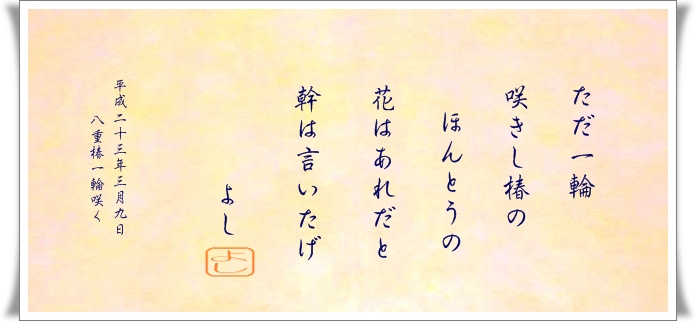 ただ一輪
咲きし椿の
ほんとうの
花はあれだと
幹は言いたげ
よし
よし
平成二十三年三月九日
八重椿一輪咲く